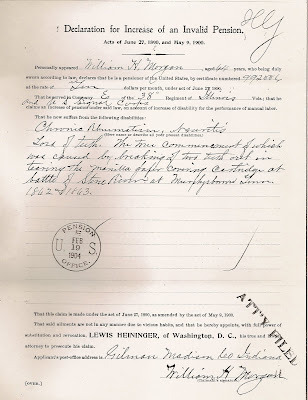 Declaration for Increase of an Invalid Pension,
Acts of June 27, 1890, and May 9, 1900.
Personally appeared William H. Morgan aged 64 years, who being duly
sworn according to law, declares that he is a pensioner of the United States, by certificate numbered
at the rate of Ten dollars per month, under act of June 27, 1890.
That he served in Company E of the 38" Regiment of Illinois Vols; that he
and U. S. Signal Corps
claims an increase of pension under said law, on account of increase of disability for the performance of manual labor.
That he now suffers from the following disabilities:
Chronic Rheumatism, Neuritis
Loss of teeth. The true commencement of which
was caused by breaking of two teeth out in
tearing the manilla paper coming cartridge at
battle of Stone River at Murphysboro Tenn.
1862 & 1863.
PENSION
U S
FEB
19
1904
OFFICE.
ATTY FILED
That this claim is made under the act of June 27, 1890, as amended by the act of May 9, 1900.
That said ailments are not in any manner due to vicious habits, and that he hereby appoints, with full power of
substitution and revocation, LEWIS HEININGER, of Washington, D. C., his true and
attorney to prosecute his claim.
Applicant's post-office address is Gilman Madison Co Indiana
William H Morgan
(OVER.)